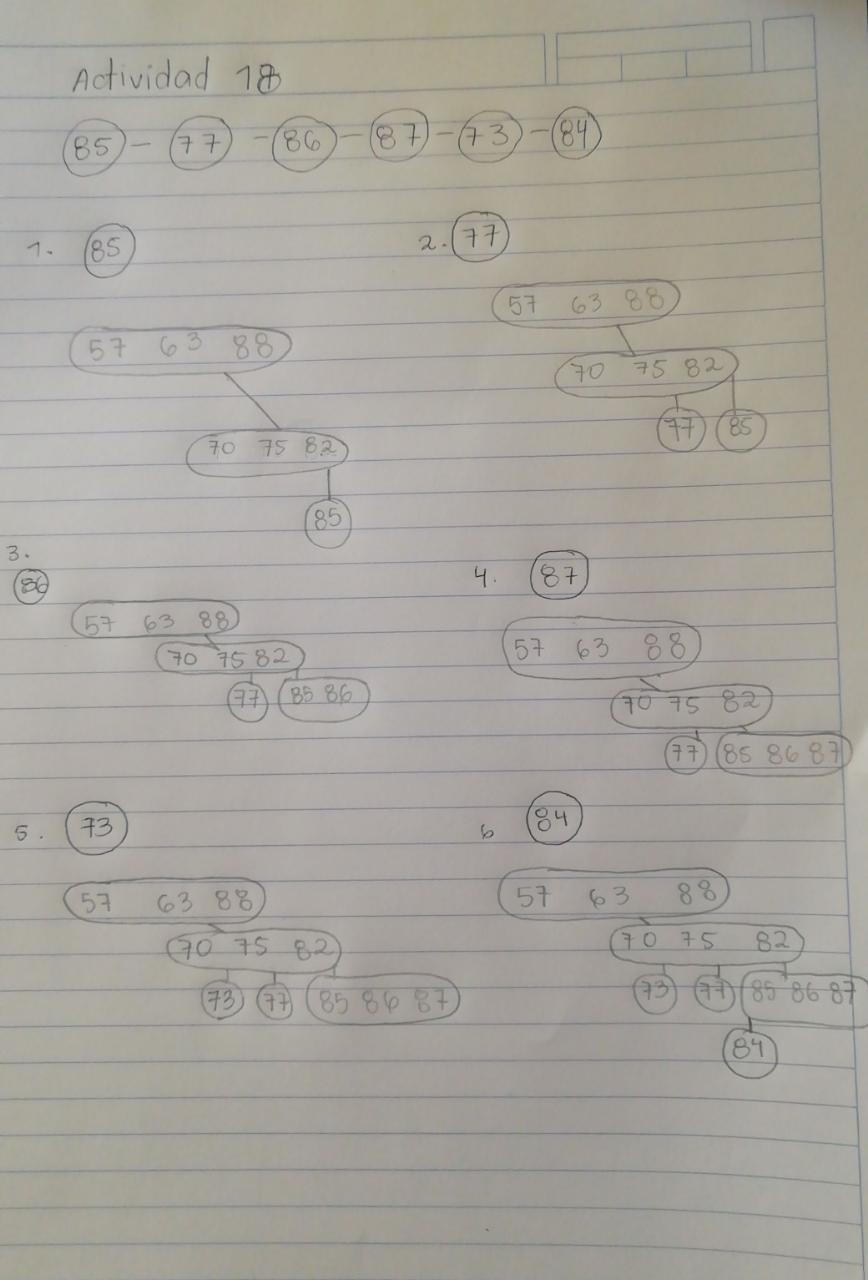 Actividad 18
85 - 77 - 86 - 87 - 73 - 84
1. 85
57 63 88
70 75 82
85
2. 77
57 63 88
70 75 82
77 85
3.
86
57 63 88
70 75 82
77 85 86
4. 87
57 63 88
70 75 82
77 85 86 87
5. 73
57 63 88
70 75 82
73 77 85 86 87
6 84
57 63 88
70 75 82
73 77 85 86 87
84